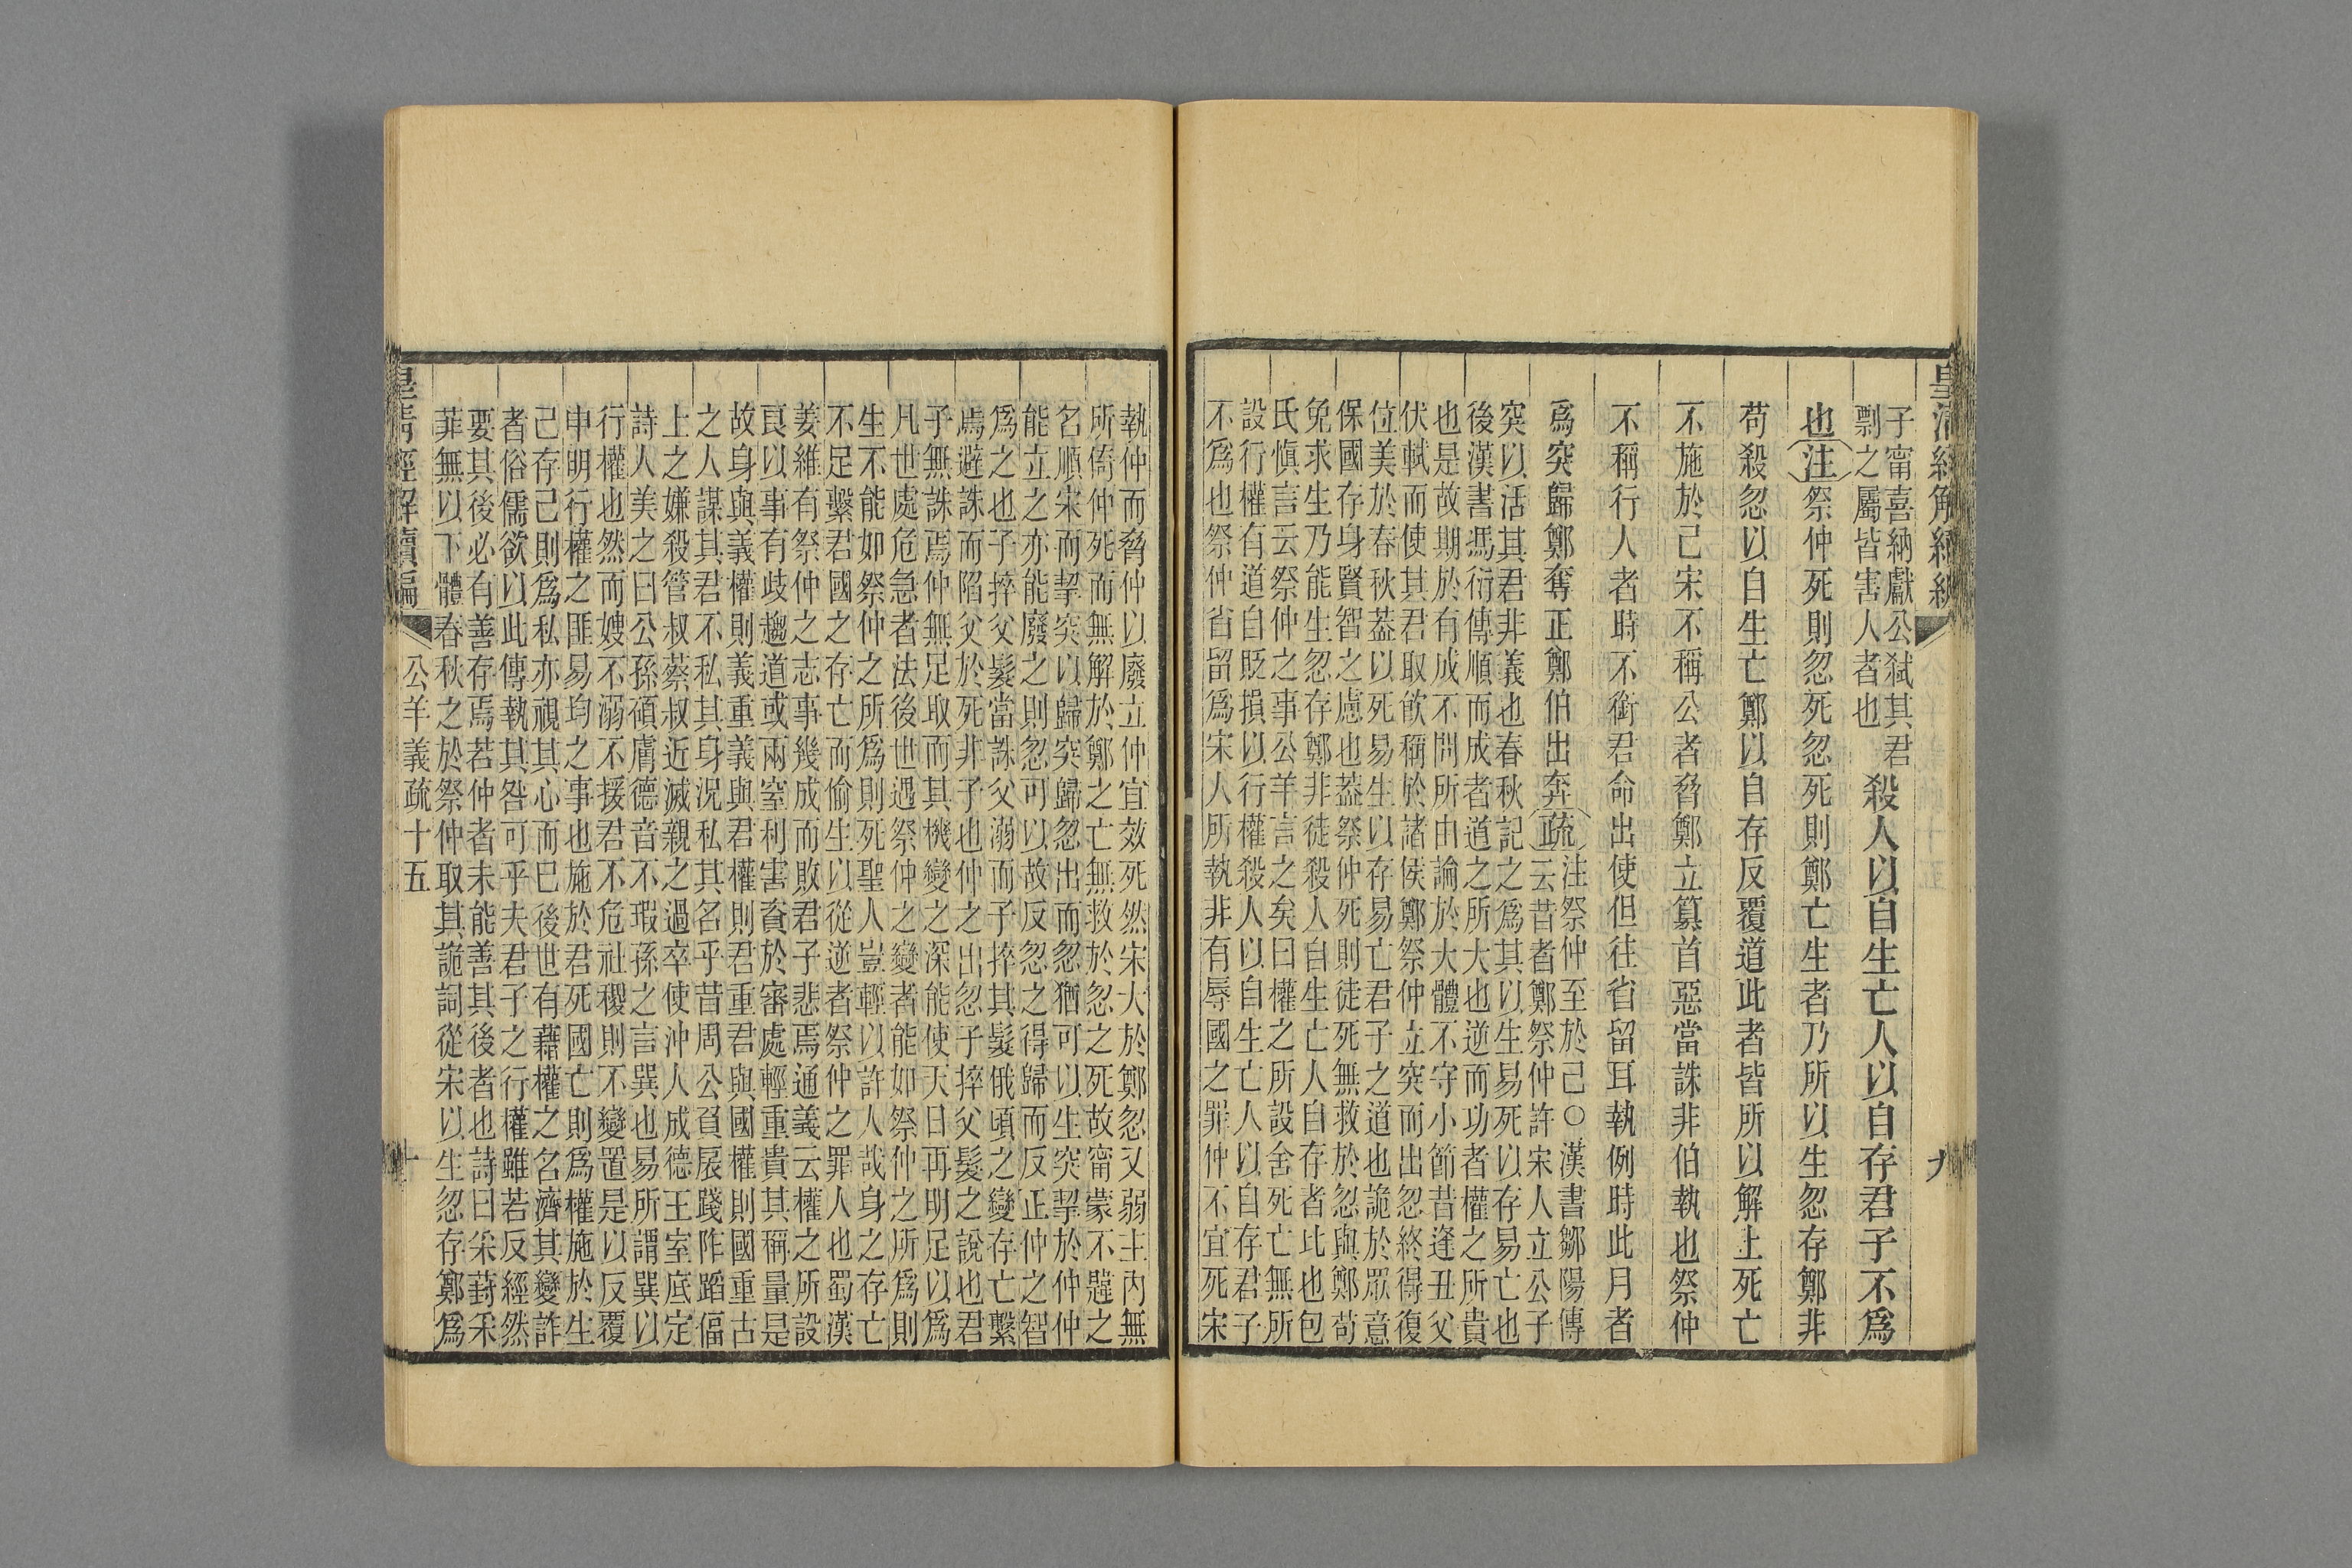 皇清經解續編
九
子甯喜納獻公弑其君
剽之屬皆害人者也
殺人以自生亡人以自存君子不爲
也注祭仲死則忽死忽死則鄭亡生者乃所以生忽存鄭非
苟殺忽以自生亡鄭以自存反覆道此者皆所以解上死亡
不施於己宋不稱公者脅鄭立篡首惡當誅非伯執也祭仲
不稱行人者時不銜君命出使但往省留耳執例時此月者
爲突歸鄭奪正鄭伯出奔疏
注祭仲至於己○漢書鄒陽傳
云昔者鄭祭仲許宋人立公子
突以活其君非義也春秋記之爲其以生易死以存易亡也
後漢書馮衍傳順而成者道之所大也逆而功者權之所貴
也是故期於有成不問所由論於大體不守小節昔逢丑父
伏軾而使其君取飲稱於諸侯鄭祭仲立突而出忽終得復
位美於春秋葢以死易生以存易亡君子之道也詭於眾意
保國存身賢智之慮也葢祭仲死則徒死無救於忽與鄭苟
免求生乃能生忽存鄭非徒殺人自生亡人自存者比也包
氏愼言云祭仲之事公羊言之矣曰權之所設舍死亡無所
設行權有道自貶損以行權殺人以自生亡人以自存君子
不爲也祭仲省留爲宋人所執非有辱國之罪仲不宜死宋
執仲而脅仲以廢立仲宜效死然宋大於鄭忽又弱主內無
所倚仲死而無解於鄭之亡無救於忽之死故甯蒙不韙之
名順宋而挈突以歸突歸忽出而忽猶可以生突挈於仲仲
能立之亦能廢之則忽可以故反忽之得歸而反正仲之智
爲之也子捽父髮當誅父溺而子捽其髮俄頃之變存亡繫
焉避誅而陷父於死非子也仲之出忽子捽父髮之說也君
子無誅焉仲無足取而其機變之深能使天日再明足以爲
凡世處危急者法後世遇祭仲之變者能如祭仲之所爲則
生不能如祭仲之所爲則死聖人豈輕以許人哉身之存亡
不足繫君國之存亡而偷生以從逆者祭仲之罪人也蜀漢
姜維有祭仲之志事幾成而敗君子悲焉通義云權之所設
良以事有歧趨道或兩窒利害資於審處輕重貴其稱量是
故身與義權則義重義與君權則君重君與國權則國重古
之人謀其君不私其身況私其名乎昔周公負扆踐阼蹈偪
上之嫌殺管叔蔡叔近滅親之過卒使沖人成德王室底定
詩人美之曰公孫碩膚德音不瑕孫之言巽也易所謂巽以
行權也然而嫂不溺不援君不危社稷則不變置是以反覆
申明行權之匪易均之事也施於君死國亡則爲權施於生
己存己則爲私亦視其心而已後世有藉權之名濟其變詐
者俗儒欲以此傳執其咎可乎夫君子之行權雖若反經然
要其後必有善存焉若仲者未能善其後者也詩曰采葑采
菲無以下體春秋之於祭仲取其詭詞從宋以生忽存鄭爲
皇清經解續編
公羊義疏十五